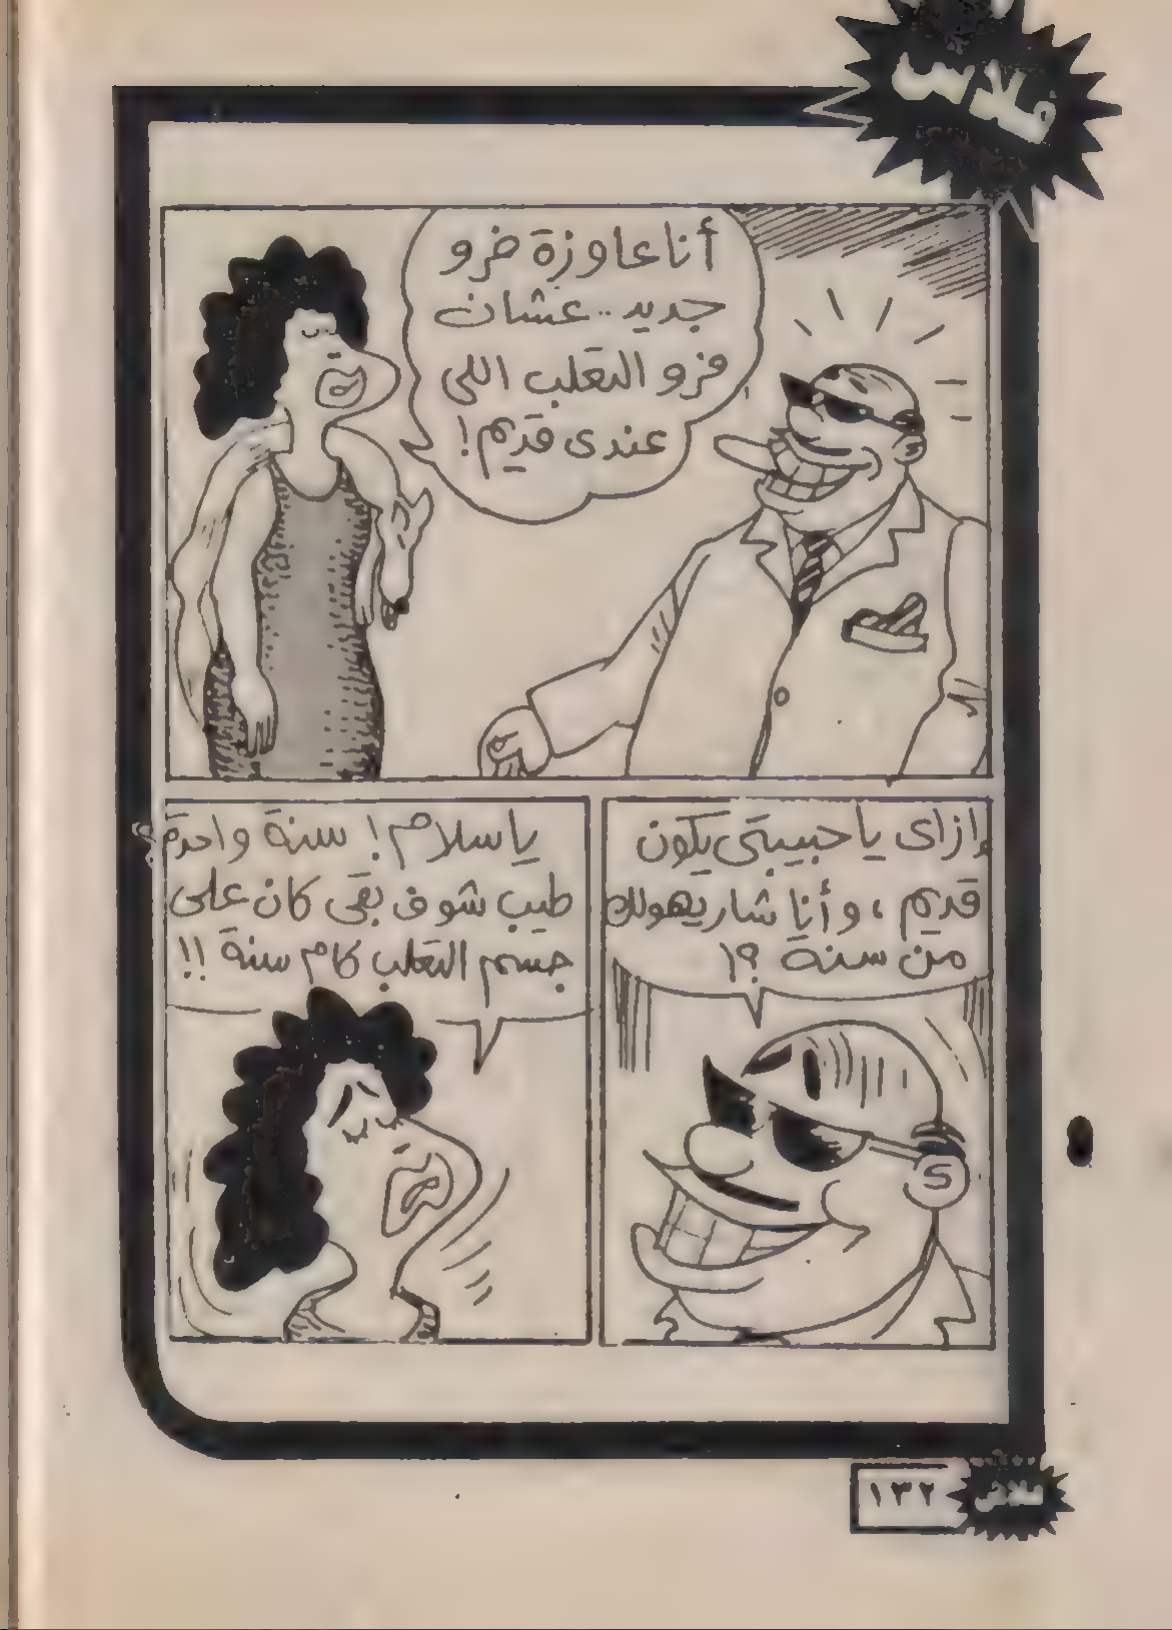 فلاش
أنا عاوزة فرو
جديد.. عشان
فرو الثعلب اللى
عندى قديم!
إزاى يا حبيبتى يكون
قديم، وأنا شاريهولك
من سنة ؟!
يا سلام! سنة واحدة؟
طيب شوف بقى كان على
جسم الثعلب كام سنة !!
١٣٢
فلاش